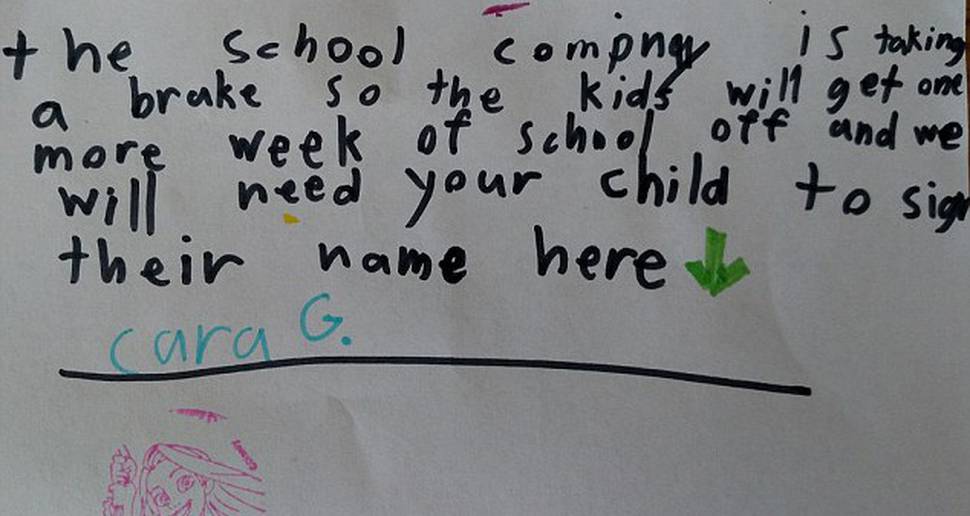 the school compny is taking
a brake so the kids will get one
more week of school off and we
will need your child to sign
their name here
cara G.